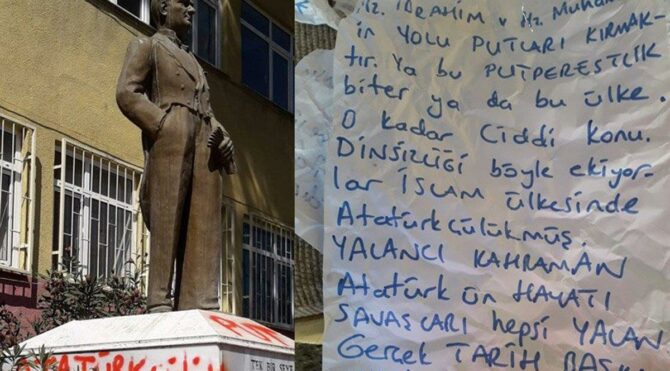 Hz. İBRAHİM v Hz. Muham
in YOLU PUTLARI KIRMAK-
tır. Ya bu PUTPERESTLİK
biter ya da bu ülke.
O kadar Ciddi konu.
DİNSİZLİĞİ böyle ekiyor-
lar İSLAM ülkesinde
Atatürkçülükmüş.
YALANCI KAHRAMAN
Atatürk ün HAYATI
SAVAŞLARI hepsi YALAN
Gerçek TARİH BAŞK
ATATÜRKÇÜLÜK
TEK BİR ŞEYE